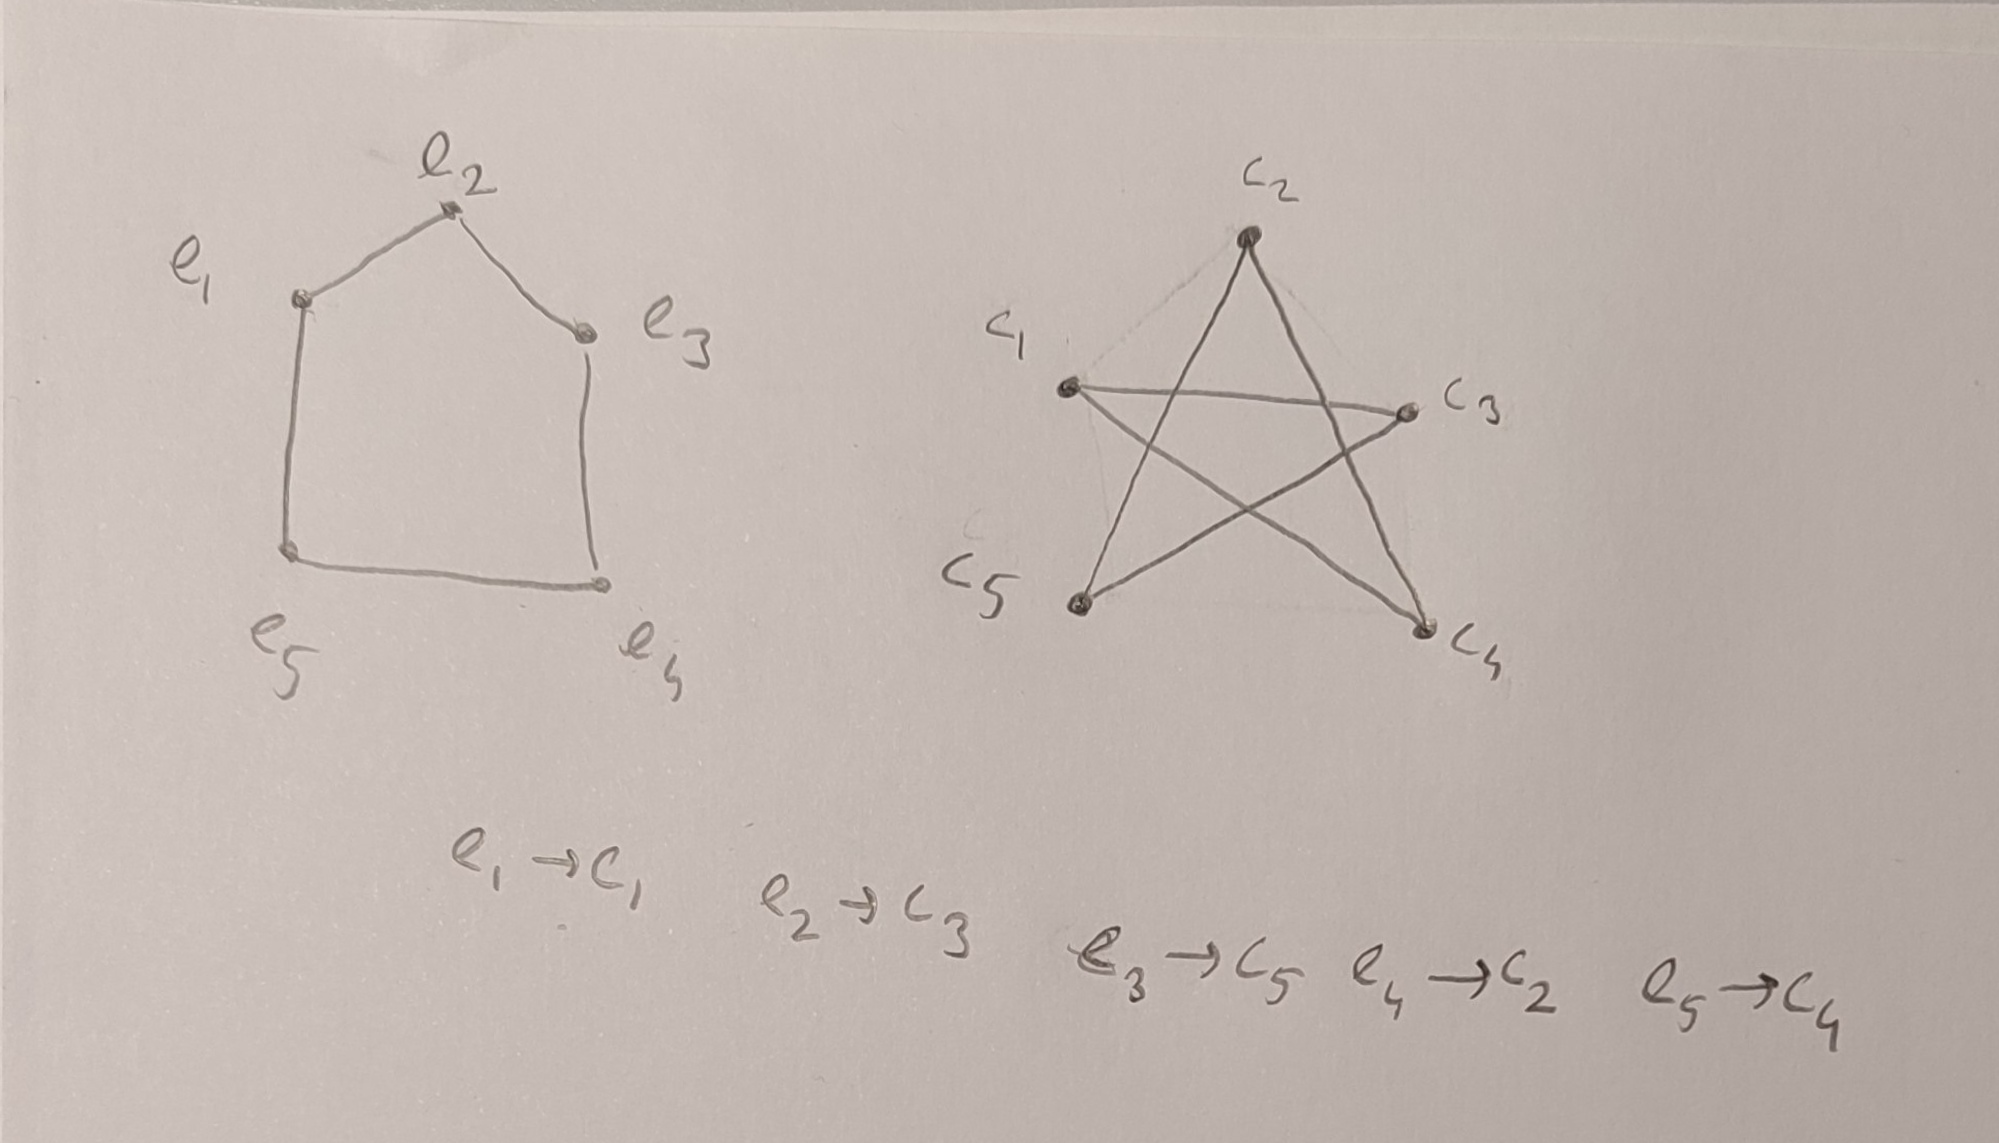 e₂
e₁
e₃
e₅
e₄
c₂
c₁
c₃
c₅
c₄
e₁ → c₁ e₂ → c₃ e₃ → c₅ e₄ → c₂ e₅ → c₄